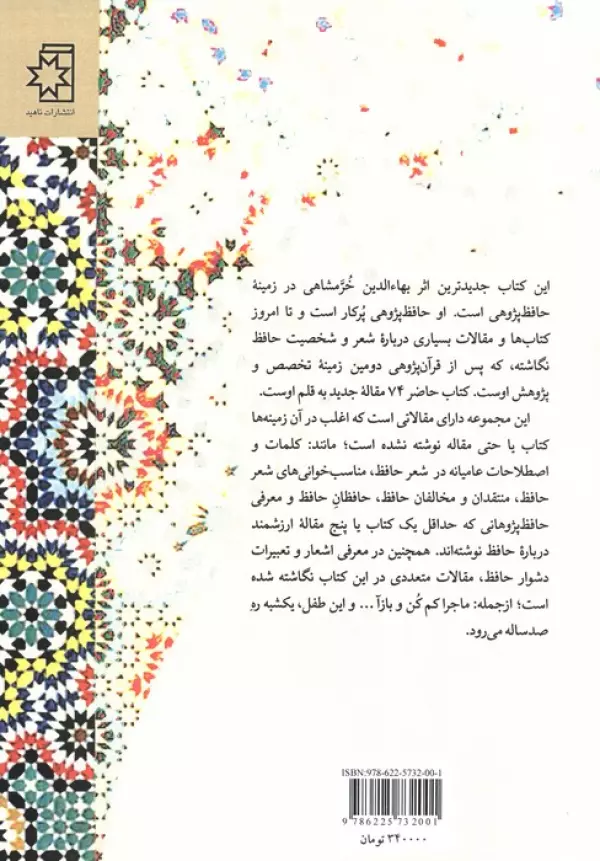 انتشارات ناهید
این کتاب جدیدترین اثر بهاءالدین خُرَّمشاهی در زمینۀ
حافظ‌پژوهی است. او حافظ‌پژوهی پُرکار است و تا امروز
کتاب‌ها و مقالات بسیاری دربارۀ شعر و شخصیت حافظ
نگاشته، که پس از قرآن‌پژوهی دومین زمینۀ تخصص و
پژوهش اوست. کتاب حاضر ۷۴ مقالۀ جدید به قلم اوست.
این مجموعه دارای مقالاتی است که اغلب در آن زمینه‌ها
کتاب یا حتی مقاله نوشته نشده است؛ مانند: کلمات و
اصطلاحات عامیانه در شعر حافظ، مناسب‌خوانی‌های شعر
حافظ، منتقدان و مخالفان حافظ، حافظانِ حافظ و معرفی
حافظ‌پژوهانی که حداقل یک کتاب یا پنج مقالۀ ارزشمند
دربارۀ حافظ نوشته‌اند. همچنین در معرفی اشعار و تعبیرات
دشوار حافظ، مقالات متعددی در این کتاب نگاشته شده
است؛ ازجمله: ماجرا کم کُن و بازآ ... و این طفل، یکشبه رهِ
صدساله می‌رود.
ISBN:978-622-5732-00-1
9 786225 732001
۳۴۰۰۰۰ تومان